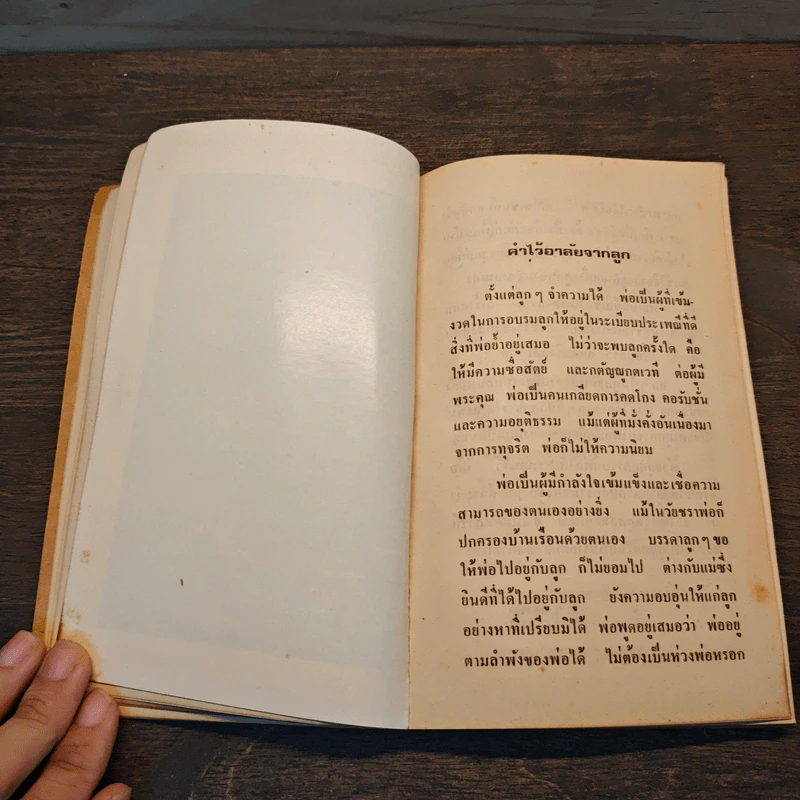 คำไว้อาลัยจากลูก
ตั้งแต่ลูก ๆ จำความได้ พ่อเป็นผู้ที่เข้ม-
งวดในการอบรมลูกให้อยู่ในระเบียบประเพณีที่ดี
สิ่งที่พ่อย้ำอยู่เสมอ ไม่ว่าจะพบลูกครั้งใด คือ
ให้มีความซื่อสัตย์ และกตัญญูกตเวที ต่อผู้มี
พระคุณ พ่อเป็นคนเกลียดการคดโกง คอรับชั่น
และความอยุติธรรม แม้แต่ผู้ที่มั่งคั่งอันเนื่องมา
จากการทุจริต พ่อก็ไม่ให้ความนิยม
พ่อเป็นผู้มีกำลังใจเข้มแข็งและเชื่อความ
สามารถของตนเองอย่างยิ่ง แม้ในวัยชราพ่อก็
ปกครองบ้านเรือนด้วยตนเอง บรรดาลูก ๆ ขอ
ให้พ่อไปอยู่กับลูก ก็ไม่ยอมไป ต่างกับแม่ซึ่ง
ยินดีที่ได้ไปอยู่กับลูก ยังความอบอุ่นให้แก่ลูก
อย่างหาที่เปรียบมิได้ พ่อพูดอยู่เสมอว่า พ่ออยู่
ตามลำพังของพ่อได้ ไม่ต้องเป็นห่วงพ่อหรอก